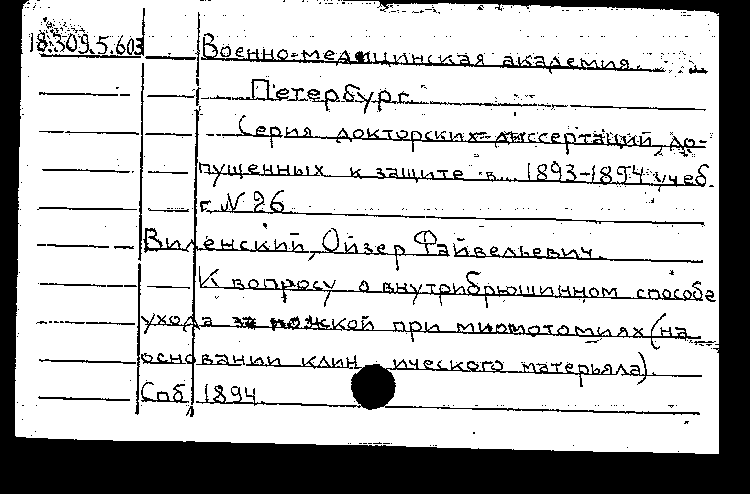 18.309.5.603 Военно-медицинская академия.
Петербург.
Серия докторских диссертаций, до-
пущенных к защите в 1893-1894 учеб.
г. N 26
Виленский, Ойзер Файвельевич.
К вопросу о внутрибрюшинном способе
ухода за ножкой при миомотомиях (на
основании клинического матерьяла).
Спб, 1894.